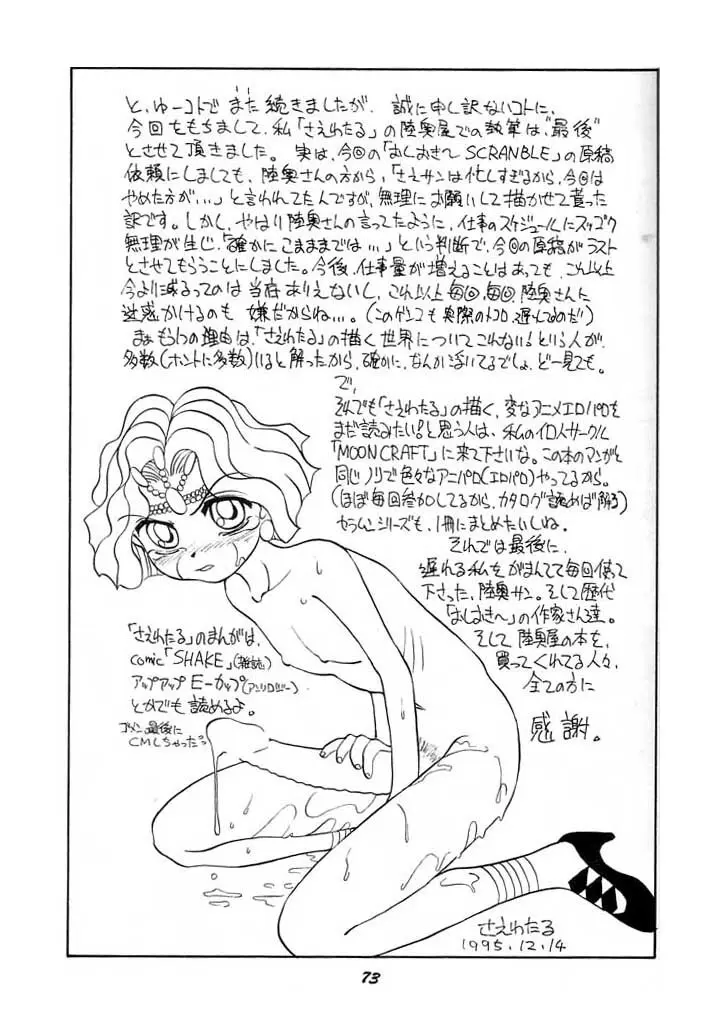 と、ゆーコトでまた続きましたが、誠に申し訳ないコトに、
今回をもちまして、私「さえわたる」の陸奥屋での執筆は“最後”
とさせて頂きました。実は、今回の「おしおき〜 SCRANBLE」の原稿
依頼にしましても、陸奥さんの方から、「さえサンは忙しすぎるから、今回は
やめた方が…」と言われてたんですが、無理にお願いして描かせて貰った
訳です。しかし、やはり陸奥さんの言ってたように、仕事のスケジュールに
無理が生じ、“確かにこのままでは…”という判断で、今回の原稿がラスト
とさせてもらうことにしました。今後、仕事量が増えることはあっても、これ以上
今より減るってのは当在ありえないし、これ以上毎回、毎回、陸奥さんに
迷惑かけるのも嫌だからね…。(このゲンコも実際のトコロ、遅れてるのだ)
まぁもう1つの理由は、「さえわたる」の描く世界についてこれない!という人が、
多数(ホントに多数)いると解ったから、確かに、なんか浮いてるでしょ、ど一見ても。
で、
それでも「さえわたる」の描く、変なアニメエロパロを
まだ読みたい!と思う人は、私の個人サークル
「MOON CRAFT」に来て下さいな。この本のマンガと
同じノリで色々なアニパロ(エロパロ)やってるから。
(ほぼ毎回参加してるから、カタログ読めば解る)
セラムンシリーズも、1冊にまとめたいしね。
それでは最後に、
遅れる私をがまんして毎回使って
下さった、陸奥サン。そして歴代
「おしおき〜」の作家さん達。
そして陸奥屋の本を、
買ってくれてる人々、
全ての方に
感謝。
「さえわたる」のまんがは、
comic「SHAKE」(雑誌)
アップアップ E-カップ(アンソロジー)
とかでも読めるよ。
ゴメン、最後に
CMしちゃったっ
さえわたる
1995.12.14
73